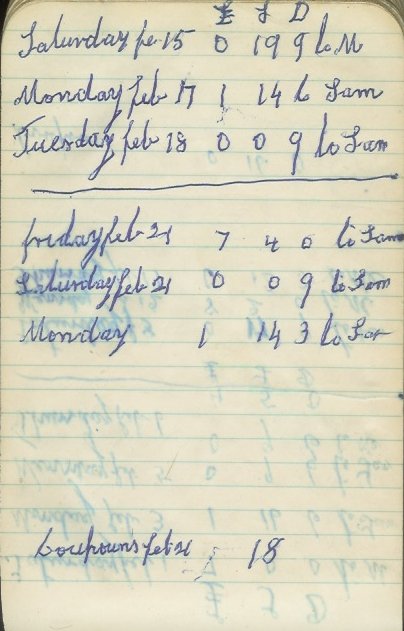 £ S D
Saturday fe 15 0 19 9 to M
Monday feb 17 1 14 6 Sam
Tuesday feb 18 0 0 9 to Sam
friday feb 21 7 4 0 to Sam
Saturday feb 21 0 0 9 to Sam
Monday 1 14 3 to Sam
Coupouns feb 21 18